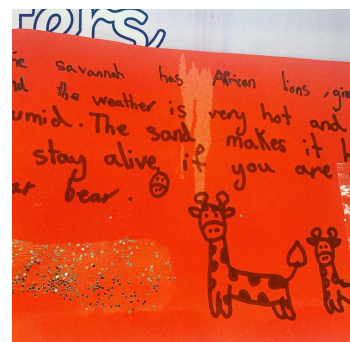 ters,
he savannah has African lions, gir
nd the weather is very hot and
umid. The sand makes it h
stay alive if you are
ar bear.